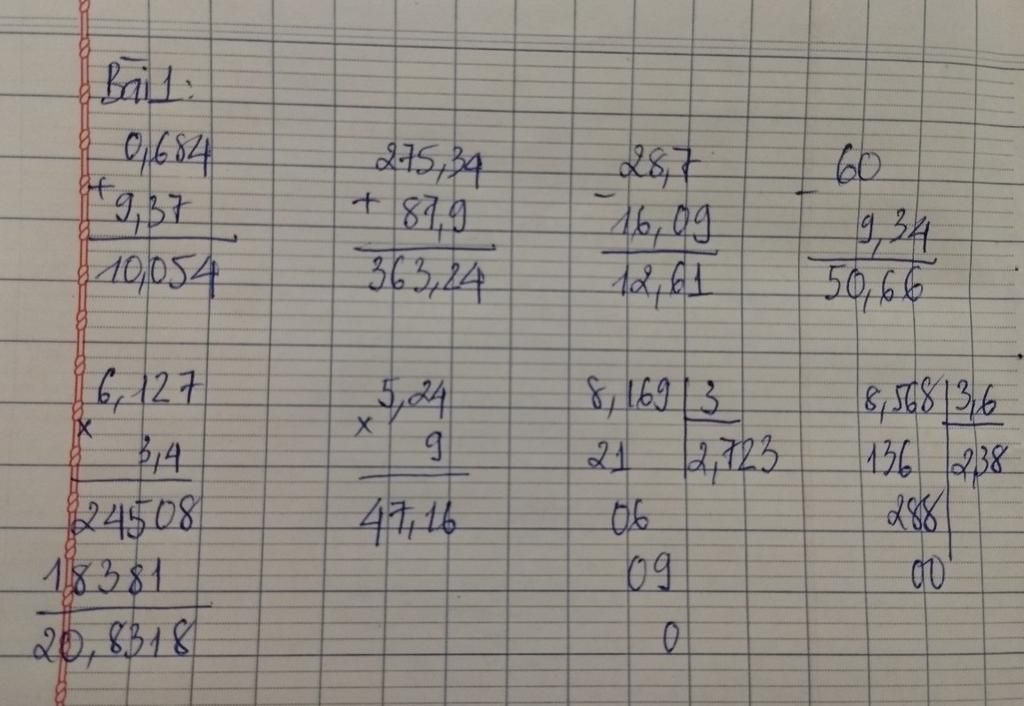 Bài 1:
0,684
+
9,37
10,054
275,34
+ 87,9
363,24
28,7
-
16,09
12,61
60
-
9,34
50,66
6,127
x
3,4
24508
18381
20,8318
5,24
x
9
47,16
8,169 3
21 2,723
06
09
0
8,568 3,6
136 2,38
288
00